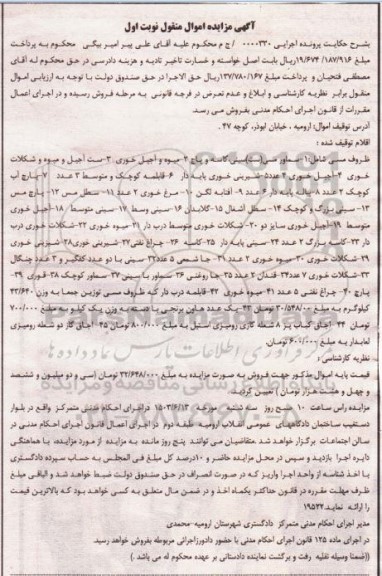 آگهی مزایده اموال منقول نوبت اول
بشرح حکایت پرونده اجرایی ۰۰۰۰۳۳۰ / ج م محکوم علیه آقای علی پیر امیر بیگی محکوم به پرداخت
مبلغ ۱۹/۶۷۴/۱۸۷/۹۱۶ ریال بابت اصل خواسته و خسارت تاخیر تادیه و هزینه دادرسی در حق محکوم له آقای
مصطفی فتحیان و پرداخت مبلغ ۱۳۷/۷۸۰/۱۶۷ ریال حق الاجرا در حق صندوق دولت با توجه به ارزیابی اموال
منقول برابر نظریه کارشناسی و ابلاغ و عدم تعرض در فرجه قانونی به مرحله فروش رسیده و در اجرای اعمال
مقررات از قانون اجرای احکام مدنی بفروش می رسد.
آدرس توقیف اموال: ارومیه ، خیابان ابوذر، کوچه ۴۷ .
اقلام توقیف شده :
ظروف مسی شامل
خوری ۴-آجیل خوری ۲ عدد ۵-شیرینی خوری پایه دار ۶-قابلمه کوچک و متوسط ۳ عدد ۷-پارچ آب
کوچک ۲ عدد ۸-پیاله پایه دار ۶ عدد ۹- آفتابه لگن ۱۰- مرغ خوری ۲ عدد ۱۱- سطل مس ۱۲- پارچ مس
۱۳- سینی بزرگ و کوچک ۱۴- سطل آشغال ۱۵-گلابدان ۱۶-سینی وسط ۱۷-سینی متوسط ۱۸-آجیل خوری
متوسط ۱۹-آجیل خوری سایز دو ۲۰- شکلات خوری متوسط درب دار ۲۱-میوه خوری ۲۲-شکلات خوری درب
دار ۲۳-کاسه بزرگ ۲ عدد ۲۴-سینی پایه دار ۲۵-کاسه ۲۶- چراغ نفتی ۲۷-شیرینی خوری ۲۸-شیرینی خوری
۲۹-شکلات خوری ۳۰-میوه خوری ۲ عدد ۳۱- جا شمعی ۵ عدد ۳۲-سینی با دو عدد کفگیر و ۲ عدد چنگال
۳۳-شکلات خوری ۷ عدد ۳۴-قندان ۲ عدد ۳۵-جا روغنی ۳۶-سماور با سینی ۳۷-سماور کوچک ۳۸-قوری ۳۹-
پارچ ۴۰- چراغ نفتی ۵ عدد ۴۱-میوه خوری ۴۲-قابلمه درب دار که ظروف مسی توزین جمعا به وزن ۴۳/۶۴۰
کیلوگرم به مبلغ ۳۰/۵۴۸/۰۰۰ تومان ۴۳-یک عدد هاون برنجی با دسته به وزن یک کیلو به مبلغ ۷۰۰/۰۰۰
تومان ۴۴- اجاق کباب پز ۸ شعله گازی رومیزی استیل به مبلغ ۸۰۰/۰۰۰ تومان ۴۵-اجاق گاز دو شعله رومیزی
لعابدار به مبلغ ۶۰۰/۰۰۰ تومان.
نظریه کارشناسی :
قیمت پایه اموال مذکور جهت فروش به صورت مزایده به مبلغ ۳۲/۶۴۸/۰۰۰ تومان (سی و دو میلیون و ششصد
و چهل و هشت هزار تومان ) تعیین گردید.
مزایده راس ساعت ۱۰ صبح روز سه شنبه مورخه ۱۴۰۳/۶/۱۳ دراجرای احکام مدنی متمرکز واقع در بلوار
دستغیب ساختمان دادگاههای عمومی انقلاب ارومیه طبقه دوم در اجرای اعمال قانون اجرای احکام مدنی در
سالن اجتماعات برگزار خواهد شد .متقاضیان می توانند پنج روز مانده به مزایده از مورد مزایده، با هماهنگی
دایره اجرا بازدید و سپس در محل مزایده حاضر و ۱۰درصد کل مبلغ فی المجلس به حساب سپرده دادگستری
با اخذ شناسه از واحد اجرا واریز که در صورت انصراف در حق صندوق دولت ضبط خواهد شد و الباقی مبلغ
ظرف مهلت مقرره در قانون حداکثر یکماه اخذ و در ضمن مال متعلق به کسی خواهد بود که بالاترین قیمت
را ارائه نماید. ۱۹۵۳۲
مدیر اجرای احکام مدنی متمرکز دادگستری شهرستان ارومیه-محمدی
در اجرای ماده ۱۲۵ قانون اجرای احکام مدنی با حضور دادورزاجرائی مربوطه بفروش خواهد رسید.
((ضمنا وسیله نقلیه رفت و برگشت نماینده دادستانی بر عهده محکوم له می باشد .)